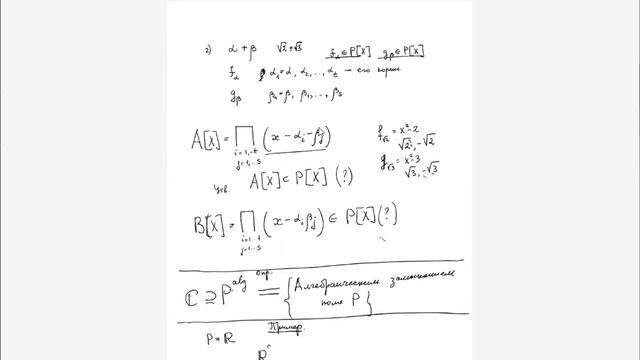 2) α + β √2+√3 f_α ∈ P[X] g_β ∈ P[X]
f_α α₁=α, α₂, ..., α_t — его корни
g_β β₁=β, β₂, ..., β_s
A[X] = ∏_{i=1,..t j=1,..s} (x − α_i − β_j)
f_√2 = x²−2
√2, −√2
g_√3 = x²−3
√3, −√3
Утв. A[X] ⊂ P[X] (?)
B[X] = ∏_{i=1..t j=1..s} (x − α_i β_j) ∈ P[X] (?)
ℂ ⊇ P^alg опр. = { Алгебраическим замыканием
поле P }
Пример.
P = ℝ
ℝ